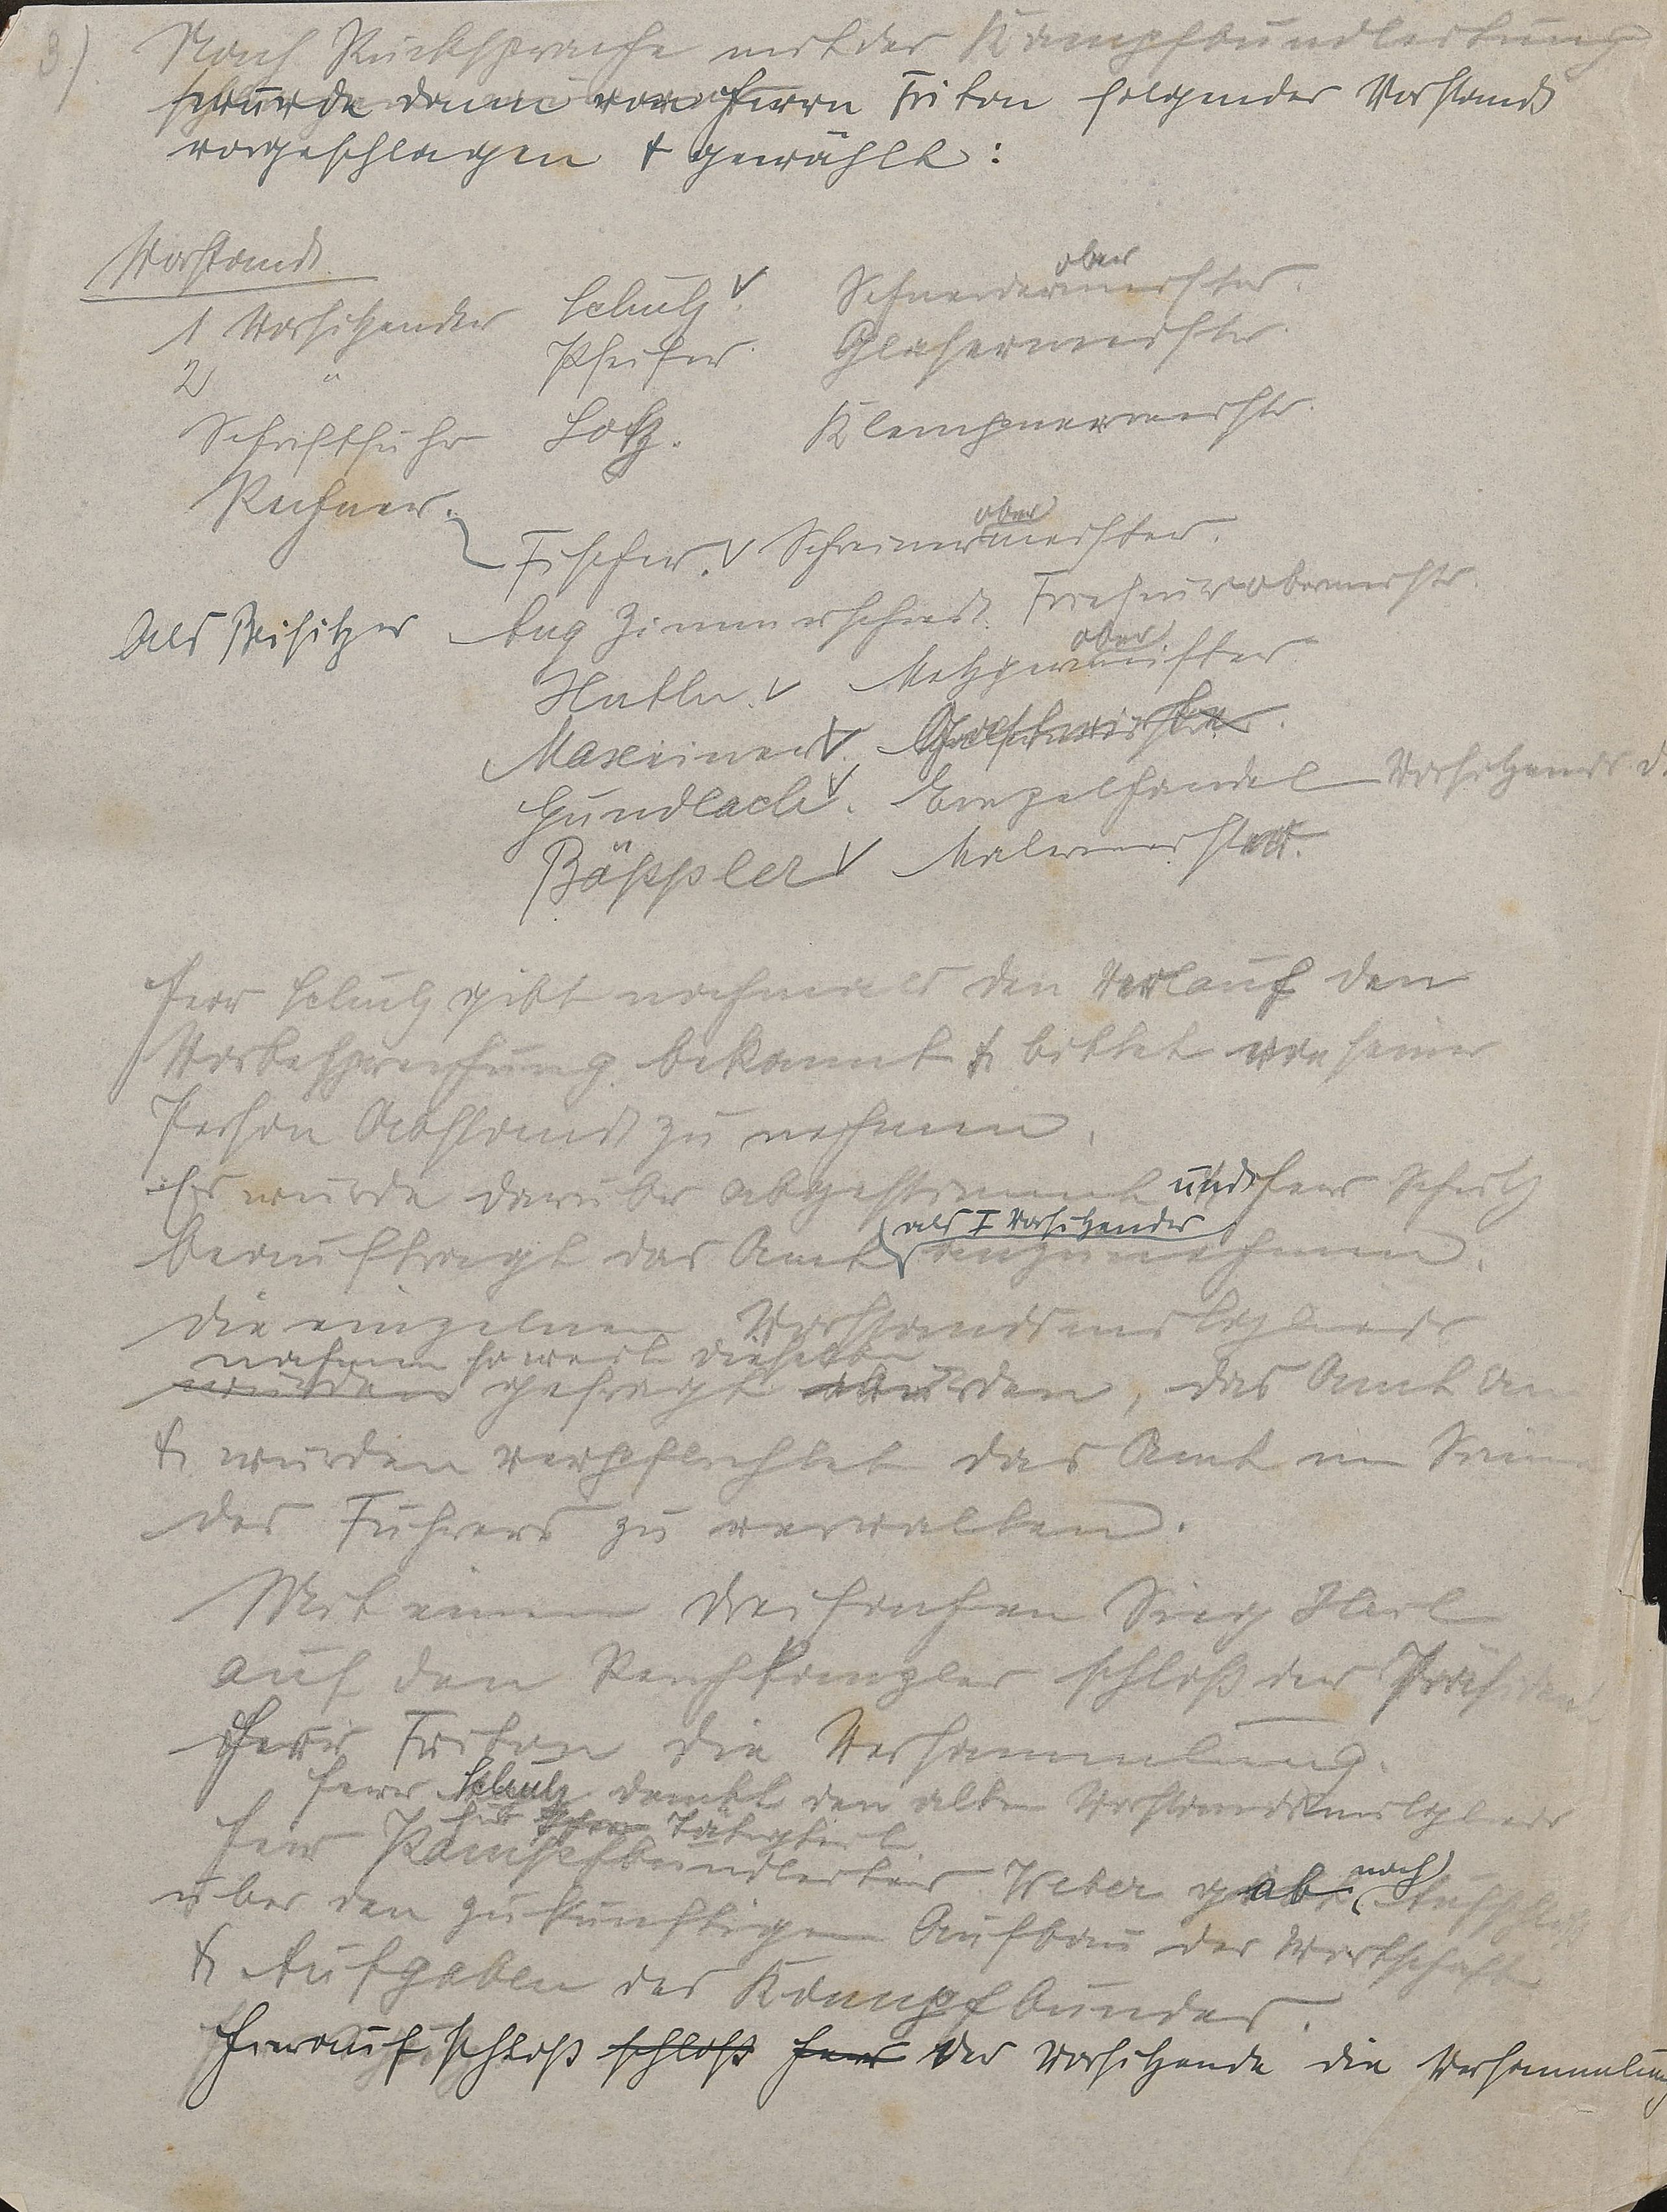 3) Nach Rücksprache mit der Kampfbundleitung
wurde dann von Herrn Friton folgender Vorstand
vorgeschlagen & gewählt:
Vorstand
1 Vorsitzender Schulz. Schneiderobermeister.
2 " Pfeifer. Glasermeister
Schriftführ Lotz. Klempnermeistr.
Rechner.
Fischer. Schreinerobermeister.
Als Beisitzer Aug Zimmerschied. Friseurobermeistr.
Hatler. Metzgerobermeister
Maxeiner.
Gundlach. Einzelhandel Vorsitzender d.
Bäppler Malermeister.
Herr Schulz gibt nochmals den Verlauf den
Vorbesprechung bekannt & bittet von seiner
Person Abstand zu nehmen.
Es wurde darüber abgestimmt und Herr Schulz
beauftragt das Amt als I Vorsitzender anzunehmen.
Die einzelnen Vorstandsmitglieder
nahmen soweit dieselben
wurden gefragt wurden, das Amt an
& wurden verpflichtet das Amt im Sinne
des Führers zu verwalten.
Mit einem dreifachen Sieg Heil
auf den Reichskanzler schloß der Präsident
Herr Friton die Versammlung.
Herr Schulz dankt den alten Vorstandsmitglieder
für Ihre Tätigkeit
Herr Kampfbundleiter Weber gab noch Aufschluß
über den zukünftigen Aufbau der Wirtschaft
& Aufgaben des Kampfbundes.
Hierauf schloß schloß Herr der Vorsitzende die Versammlung